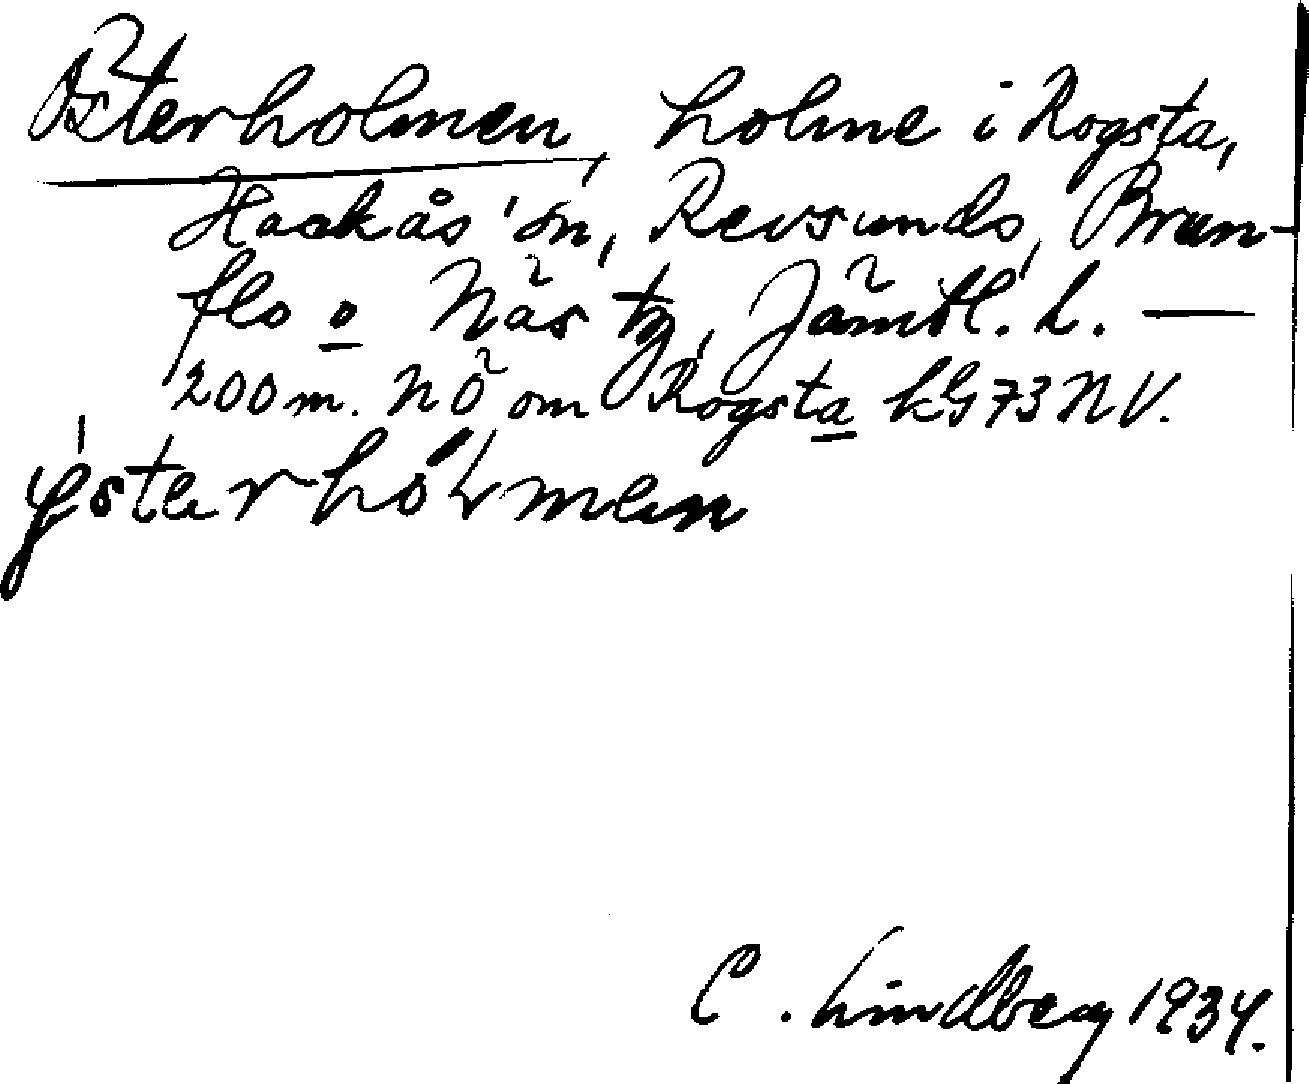 Österholmen, holme i Rogsta,
Hackås sn, Revsunds, Brun-
flo o Näs tg, Jämtl. l. —
200 m. NÖ om Rogsta kG73NV.
C. Lindberg 1934.